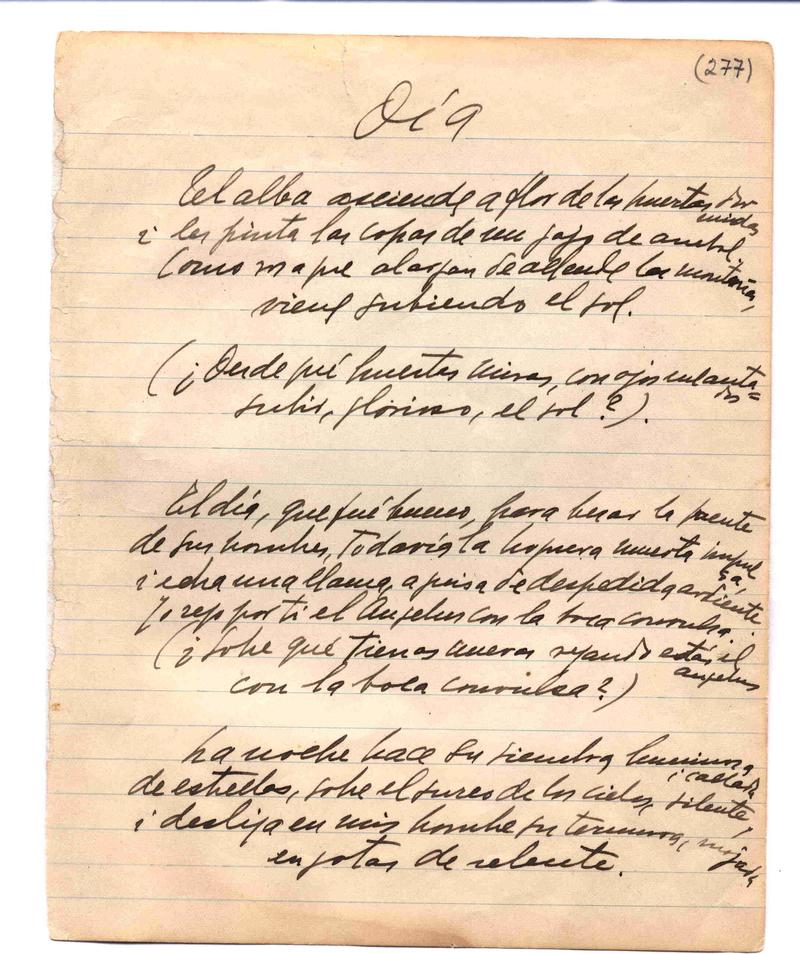 (277)
Día
El alba asciende a flor de las huertas dor
midas
i les pinta las copas de un jajo de arrebol.
Como rosa que alargan de allende las montañas,
viene subiendo el sol.
(¿Desde qué huertas miras, con ojos encanta=
dos
subir, glorioso, el sol?).
El día, que fué bueno, para besar la frente
de sus hombres, todavía la hoguera muerta impul
sa,
i echa una llama, a guisa de despedida ardiente.
Yo rezo por ti el Ángelus con la boca convulsa.
(¿Sobre qué tienas nuevas rezando estás el
angelus
con la boca convulsa?)
La noche hace su siembra luminosa
i callada
de estrellas, sobre el surco de los cielos, silente,
i deslíe en mis hombros su ternura, mojada
en gotas de relente.